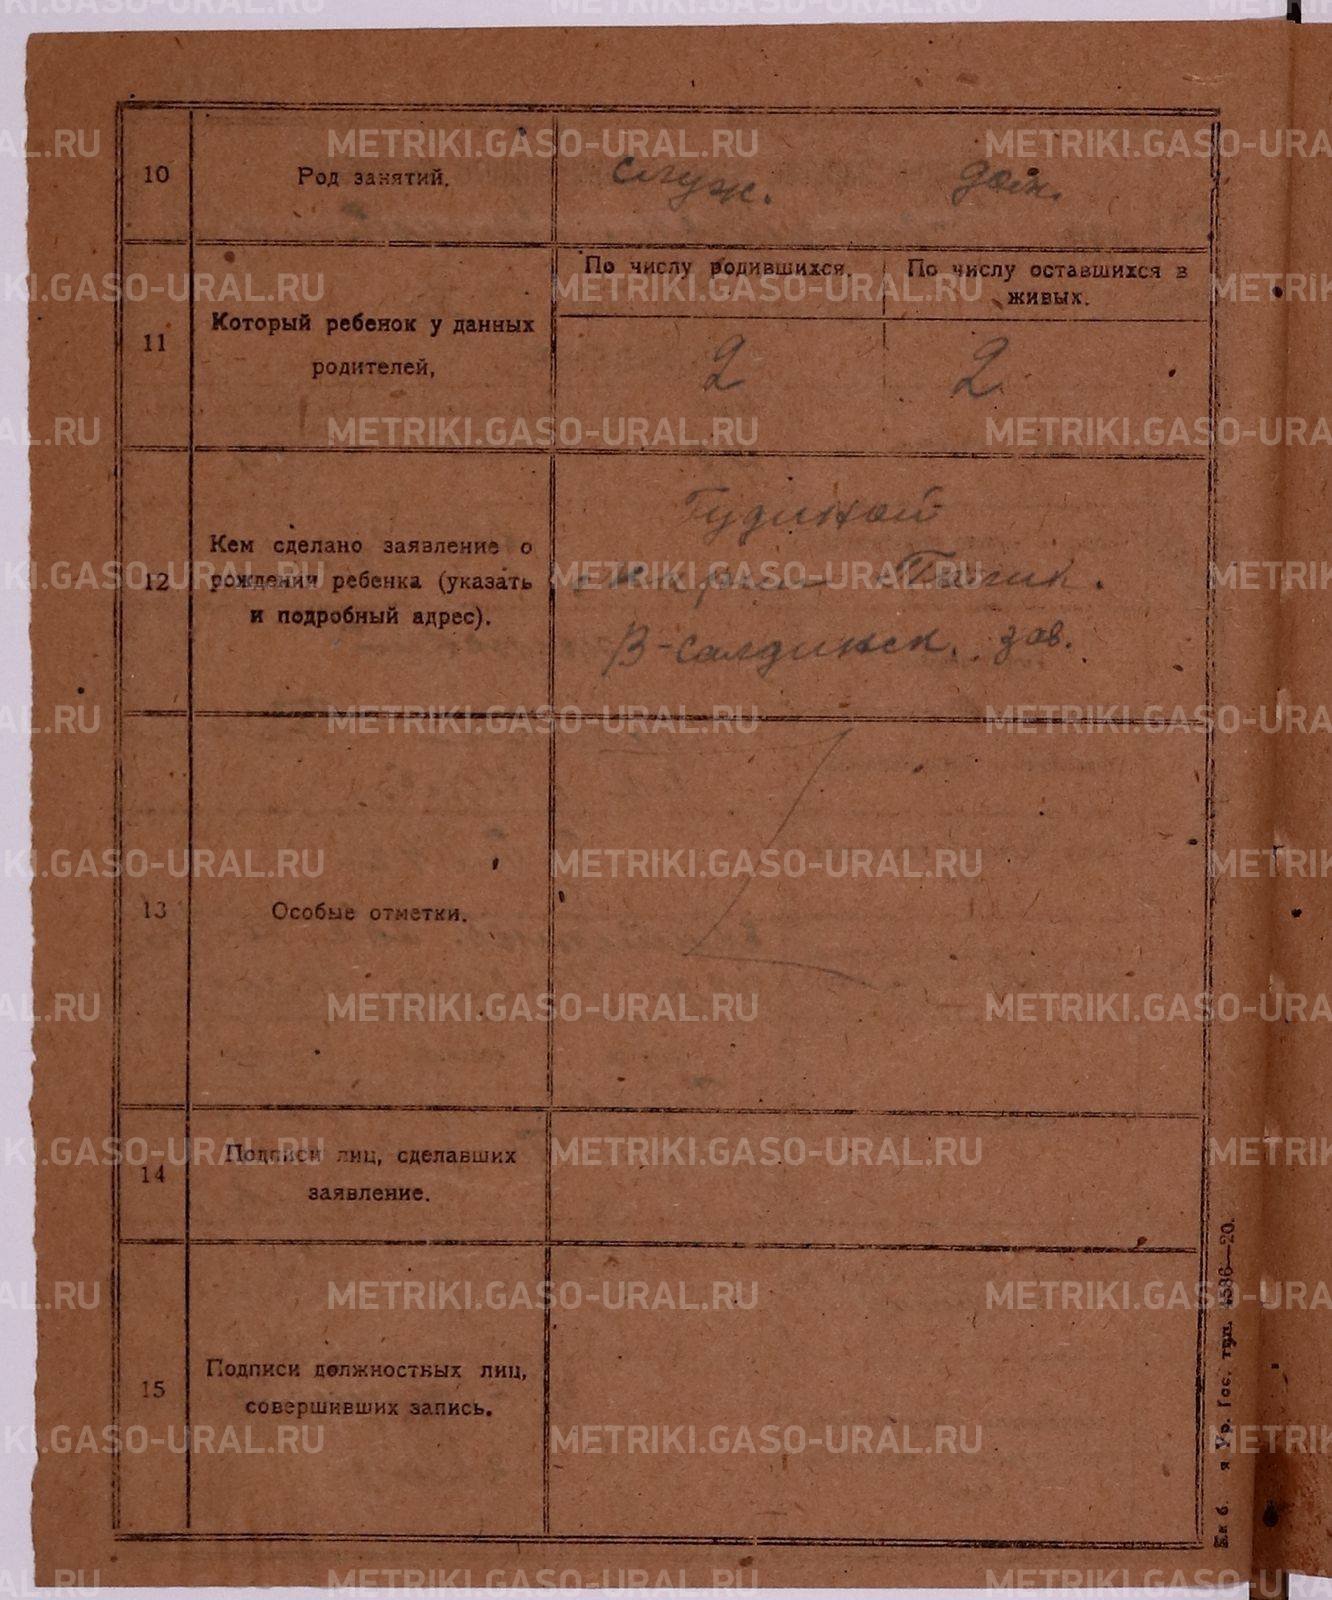 10
Род занятий.
служ. дом.
11
Который ребенок у данных
родителей,
По числу родившихся.
По числу оставшихся в
живых.
2 2
12
Кем сделано заявление о
рождении ребенка (указать
и подробный адрес).
Гудиной
В-Салдинск. зав.
13
Особые отметки.
14
Подписи лиц, сделавших
заявление.
15
Подписи должностных лиц,
совершивших запись.
я Ур. Гос. тип. 4586—20.
METRIKI.GASO-URAL.RU